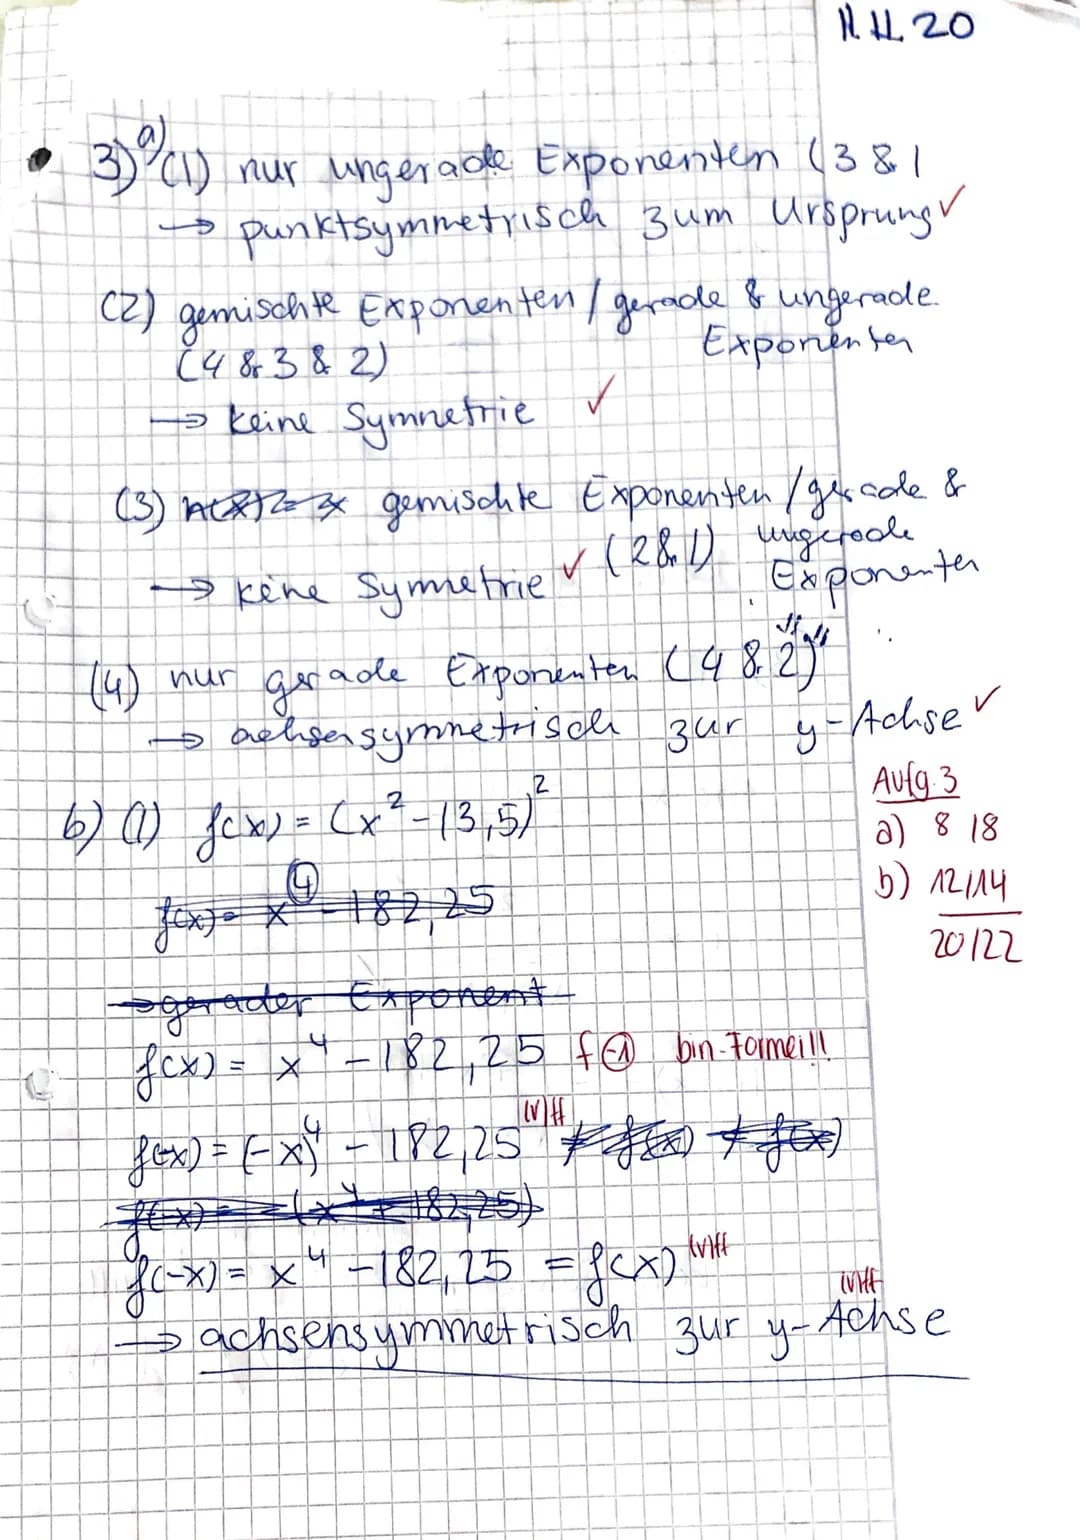 11.11.20
3) a) (1) nur ungerade Exponenten (3 & 1
→ punktsymmetrisch zum Ursprung ✓
(2) gemischte Exponenten / gerade & ungerade
Exponenten
(4 & 3 & 2)
→ keine Symmetrie ✓
(3) gemischte Exponenten / gerade &
(2 & 1) ungerade
→ keine Symmetrie ✓ Exponenten
(4) nur gerade Exponenten (4 & 2)
→ achsensymmetrisch zur y-Achse ✓
Aufg. 3
a) 8 18
b) 12/14
20/22
b) (1) f(x) = (x² - 13,5)²
f(x) = x⁴ - 182,25
→ gerader Exponent
f(x) = x⁴ - 182,25 f -1 bin. Formel!!
f(-x) = (-x)⁴ - 182,25 (v)ff ≠ f(x) ≠ f(x)
f(-x) = x⁴ - 182,25 = f(x) (v)ff
(v)ff
→ achsensymmetrisch zur y-Achse